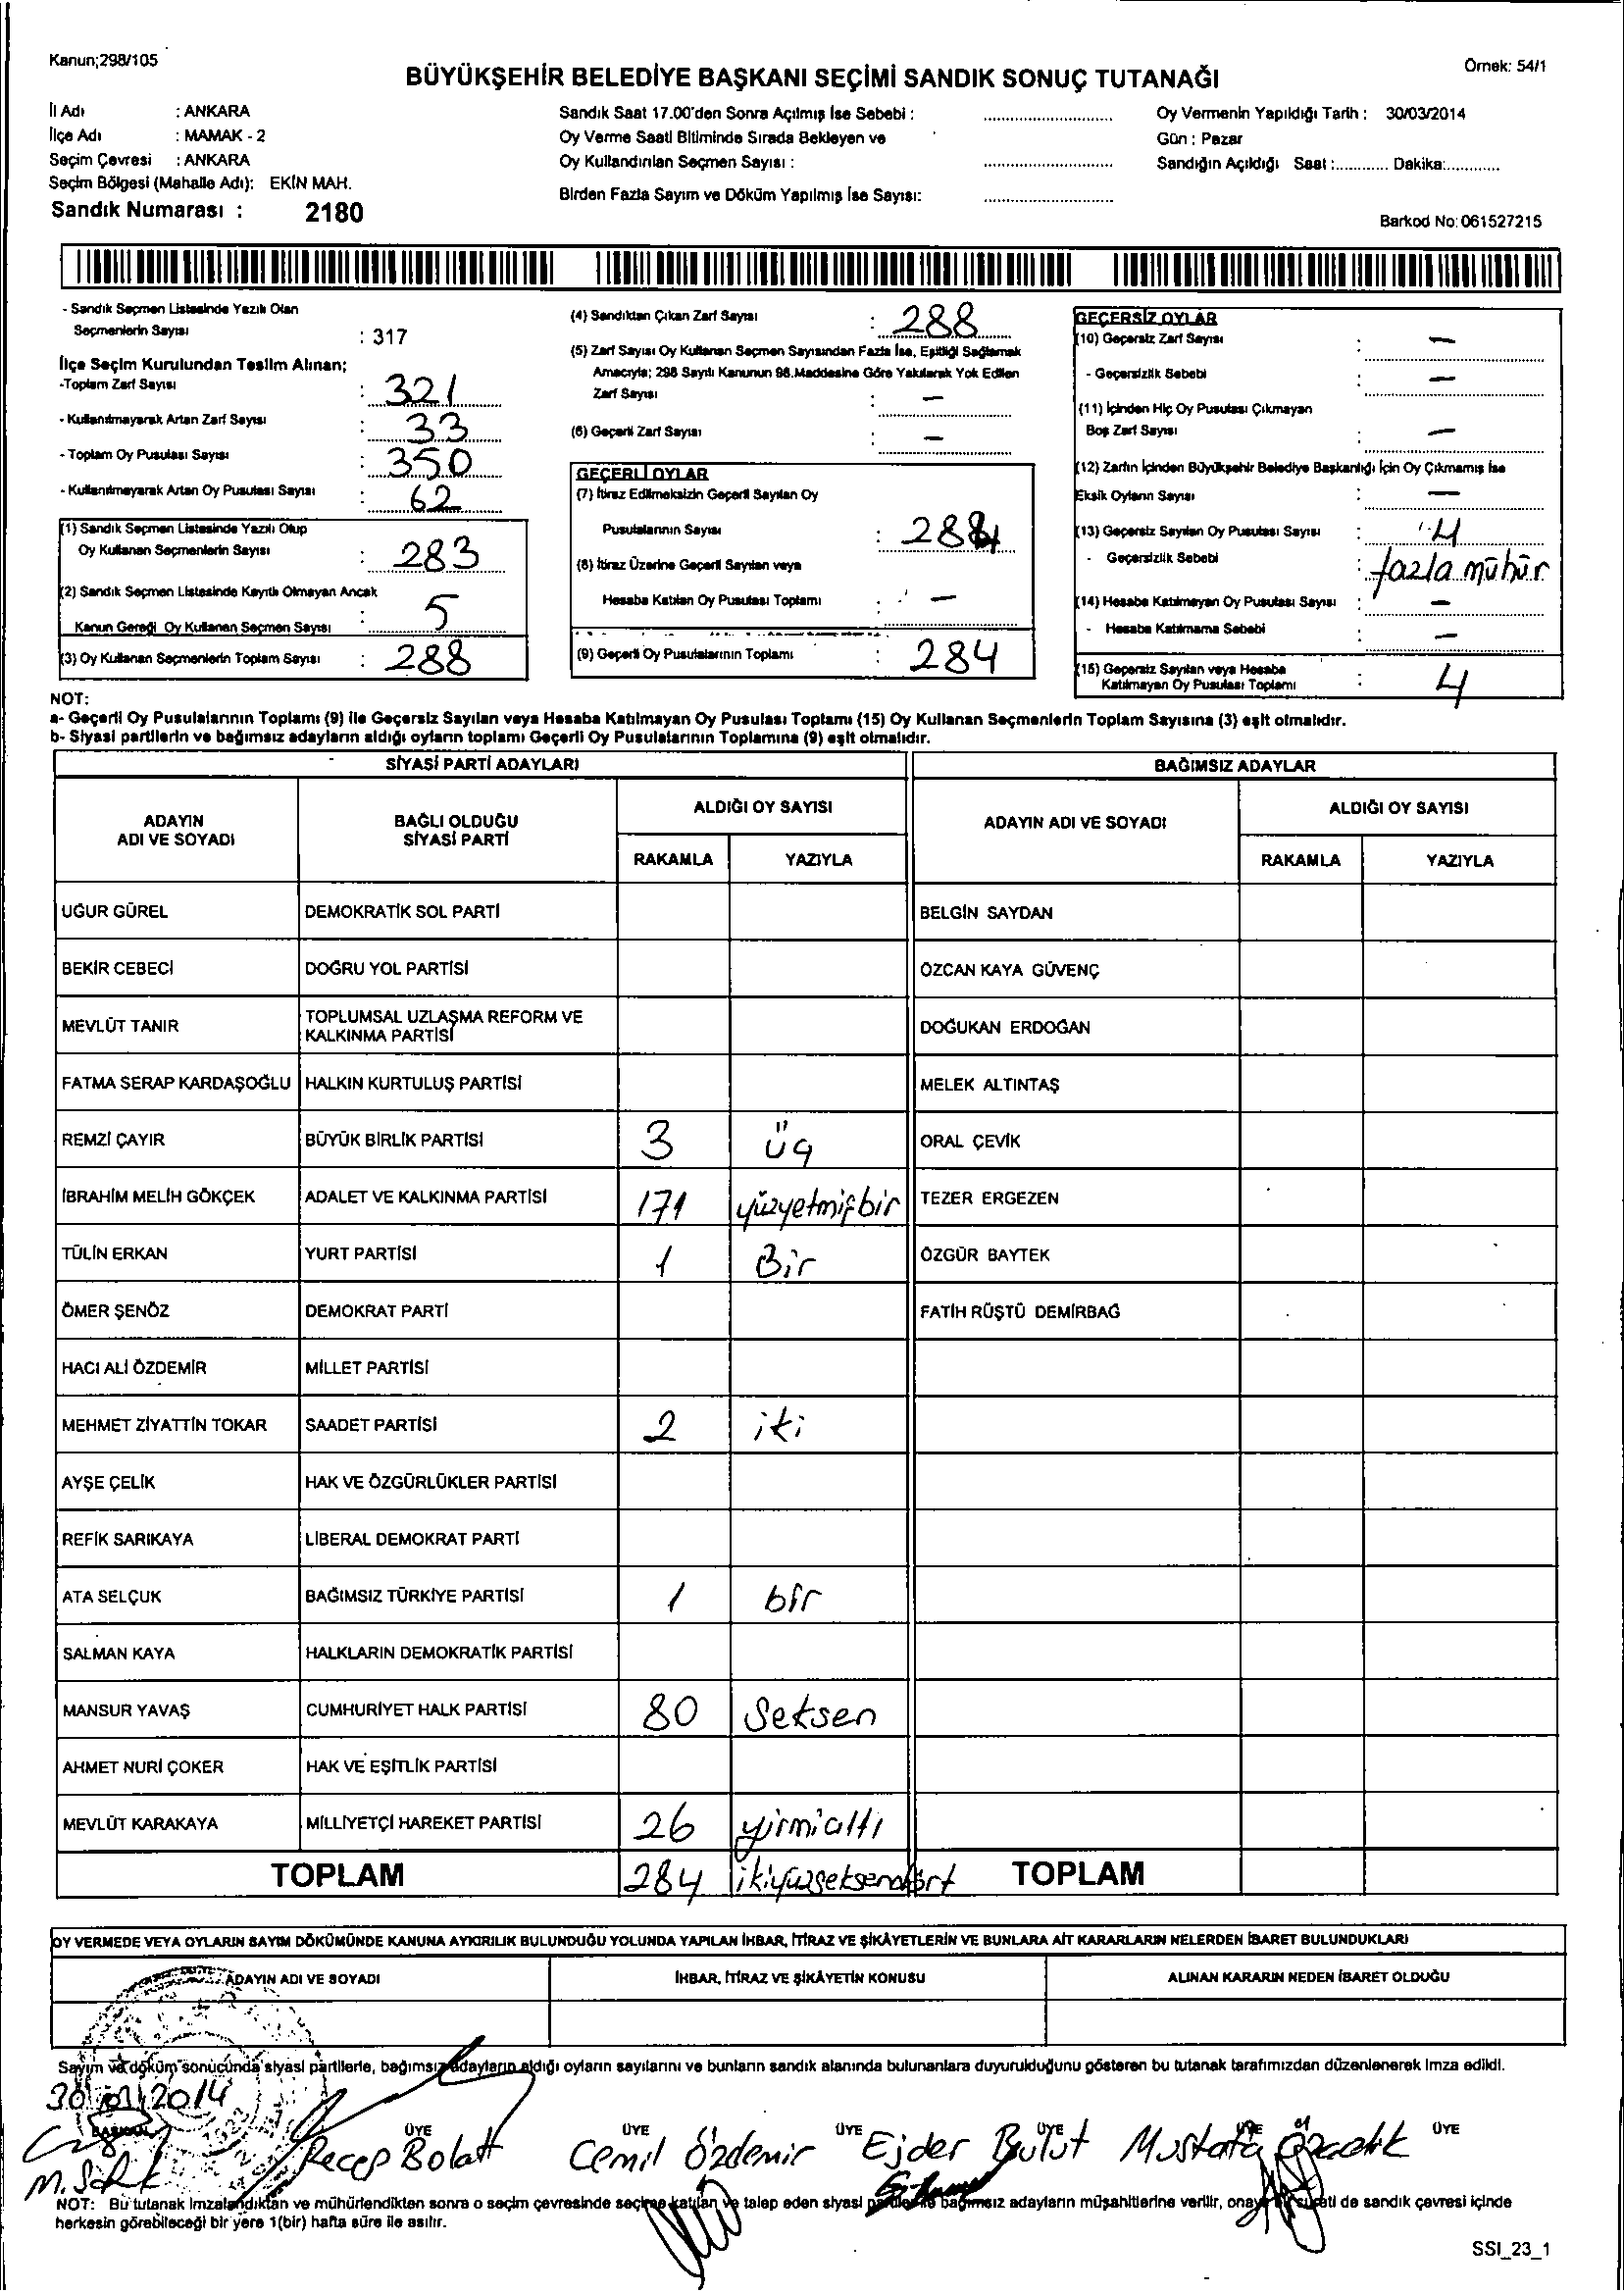 Kanun;298/105
Örnek: 54/1
BÜYÜKŞEHİR BELEDİYE BAŞKANI SEÇİMİ SANDIK SONUÇ TUTANAĞI
İl Adı : ANKARA
İlçe Adı : MAMAK - 2
Seçim Çevresi : ANKARA
Seçim Bölgesi (Mahalle Adı): EKİN MAH.
Sandık Numarası : 2180
Sandık Saat 17.00'den Sonra Açılmış İse Sebebi :
Oy Verme Saati Bitiminde Sırada Bekleyen ve
Oy Kullandırılan Seçmen Sayısı :
Birden Fazla Sayım ve Döküm Yapılmış İse Sayısı:
Oy Vermenin Yapıldığı Tarih : 30/03/2014
Gün : Pazar
Sandığın Açıldığı Saat :............ Dakika:............
Barkod No: 061527215
- Sandık Seçmen Listesinde Yazılı Olan
Seçmenlerin Sayısı : 317
İlçe Seçim Kurulundan Teslim Alınan;
-Toplam Zarf Sayısı : 321
- Kullanılmayarak Artan Zarf Sayısı : 33
- Toplam Oy Pusulası Sayısı : 350
- Kullanılmayarak Artan Oy Pusulası Sayısı : 62
(1) Sandık Seçmen Listesinde Yazılı Olup
Oy Kullanan Seçmenlerin Sayısı : 283
(2) Sandık Seçmen Listesinde Kayıtlı Olmayan Ancak
Kanun Gereği Oy Kullanan Seçmen Sayısı : 5
(3) Oy Kullanan Seçmenlerin Toplam Sayısı : 288
(4) Sandıktan Çıkan Zarf Sayısı : 288
(5) Zarf Sayısı Oy Kullanan Seçmen Sayısından Fazla İse, Eşitliği Sağlamak
Amacıyla; 298 Sayılı Kanunun 98.Maddesine Göre Yakılarak Yok Edilen
Zarf Sayısı : —
(6) Geçerli Zarf Sayısı : —
GEÇERLİ OYLAR
(7) İtiraz Edilmeksizin Geçerli Sayılan Oy
Pusulalarının Sayısı : 284
(8) İtiraz Üzerine Geçerli Sayılan veya
Hesaba Katılan Oy Pusulası Toplamı : —
(9) Geçerli Oy Pusulalarının Toplamı : 284
GEÇERSİZ OYLAR
(10) Geçersiz Zarf Sayısı : —
- Geçersizlik Sebebi : —
(11) İçinden Hiç Oy Pusulası Çıkmayan
Boş Zarf Sayısı : —
(12) Zarfın İçinden Büyükşehir Belediye Başkanlığı İçin Oy Çıkmamış İse
Eksik Oyların Sayısı : —
(13) Geçersiz Sayılan Oy Pusulası Sayısı : 4
- Geçersizlik Sebebi : fazla mühür
(14) Hesaba Katılmayan Oy Pusulası Sayısı : —
- Hesaba Katılmama Sebebi : —
(15) Geçersiz Sayılan veya Hesaba
Katılmayan Oy Pusulası Toplamı : 4
NOT:
a- Geçerli Oy Pusulalarının Toplamı (9) ile Geçersiz Sayılan veya Hesaba Katılmayan Oy Pusulası Toplamı (15) Oy Kullanan Seçmenlerin Toplam Sayısına (3) eşit olmalıdır.
b- Siyasi partilerin ve bağımsız adayların aldığı oyların toplamı Geçerli Oy Pusulalarının Toplamına (9) eşit olmalıdır.
SİYASİ PARTİ ADAYLARI BAĞIMSIZ ADAYLAR
ADAYIN ADI VE SOYADI
BAĞLI OLDUĞU SİYASİ PARTİ
ALDIĞI OY SAYISI
RAKAMLA YAZIYLA
ADAYIN ADI VE SOYADI
ALDIĞI OY SAYISI
RAKAMLA YAZIYLA
UĞUR GÜREL DEMOKRATİK SOL PARTİ BELGİN SAYDAN
BEKİR CEBECİ DOĞRU YOL PARTİSİ ÖZCAN KAYA GÜVENÇ
MEVLÜT TANIR TOPLUMSAL UZLAŞMA REFORM VE KALKINMA PARTİSİ DOĞUKAN ERDOĞAN
FATMA SERAP KARDAŞOĞLU HALKIN KURTULUŞ PARTİSİ MELEK ALTINTAŞ
REMZİ ÇAYIR BÜYÜK BİRLİK PARTİSİ 3 üç ORAL ÇEVİK
İBRAHİM MELİH GÖKÇEK ADALET VE KALKINMA PARTİSİ 171 yüzyetmişbir TEZER ERGEZEN
TÜLİN ERKAN YURT PARTİSİ 1 Bir ÖZGÜR BAYTEK
ÖMER ŞENÖZ DEMOKRAT PARTİ FATİH RÜŞTÜ DEMİRBAĞ
HACI ALİ ÖZDEMİR MİLLET PARTİSİ
MEHMET ZİYATTİN TOKAR SAADET PARTİSİ 2 iki
AYŞE ÇELİK HAK VE ÖZGÜRLÜKLER PARTİSİ
REFİK SARIKAYA LİBERAL DEMOKRAT PARTİ
ATA SELÇUK BAĞIMSIZ TÜRKİYE PARTİSİ 1 bir
SALMAN KAYA HALKLARIN DEMOKRATİK PARTİSİ
MANSUR YAVAŞ CUMHURİYET HALK PARTİSİ 80 Seksen
AHMET NURİ ÇOKER HAK VE EŞİTLİK PARTİSİ
MEVLÜT KARAKAYA MİLLİYETÇİ HAREKET PARTİSİ 26 yirmialtı
TOPLAM 284 ikiyüzseksendört TOPLAM
OY VERMEDE VEYA OYLARIN SAYIM DÖKÜMÜNDE KANUNA AYKIRILIK BULUNDUĞU YOLUNDA YAPILAN İHBAR, İTİRAZ VE ŞİKÂYETLERİN VE BUNLARA AİT KARARLARIN NELERDEN İBARET BULUNDUKLARI
ADAYIN ADI VE SOYADI İHBAR, İTİRAZ VE ŞİKÂYETİN KONUSU ALINAN KARARIN NEDEN İBARET OLDUĞU
Sayım ve döküm sonucunda siyasi partilerle, bağımsız adayların aldığı oyların sayılarını ve bunların sandık alanında bulunanlara duyurulduğunu gösteren bu tutanak tarafımızdan düzenlenerek imza edildi.
30/03/2014
BAŞKAN ÜYE ÜYE ÜYE ÜYE ÜYE ÜYE
Recep Bolatt Cemil Özdemir Ejder Bulut Mustafa Özçelik
NOT: Bu tutanak imzalandıktan ve mühürlendikten sonra o seçim çevresinde seçime katılan ve talep eden siyasi partiler ile bağımsız adayların müşahitlerine verilir, onaylı bir sureti de sandık çevresi içinde
herkesin görebileceği bir yere 1(bir) hafta süre ile asılır.
SSI_23_1